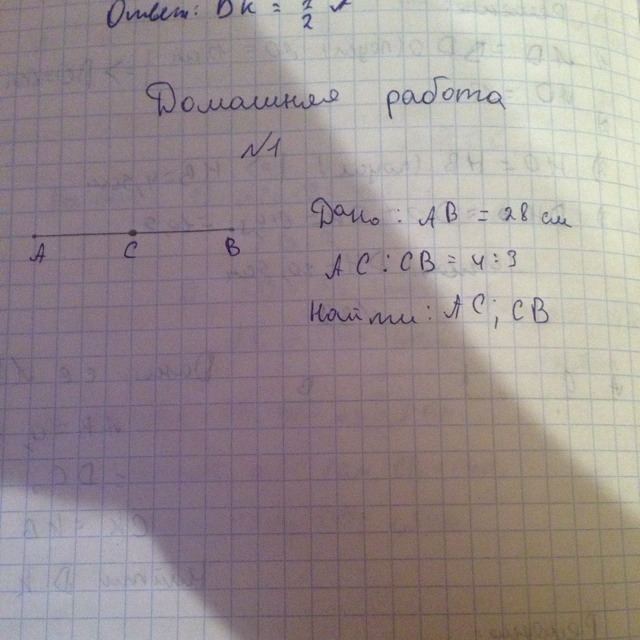 Ответ: BK = 
Домашняя работа
№1
Дано: AB = 28 см
A C B
AC : CB = 4 : 3
Найти: AC; CB